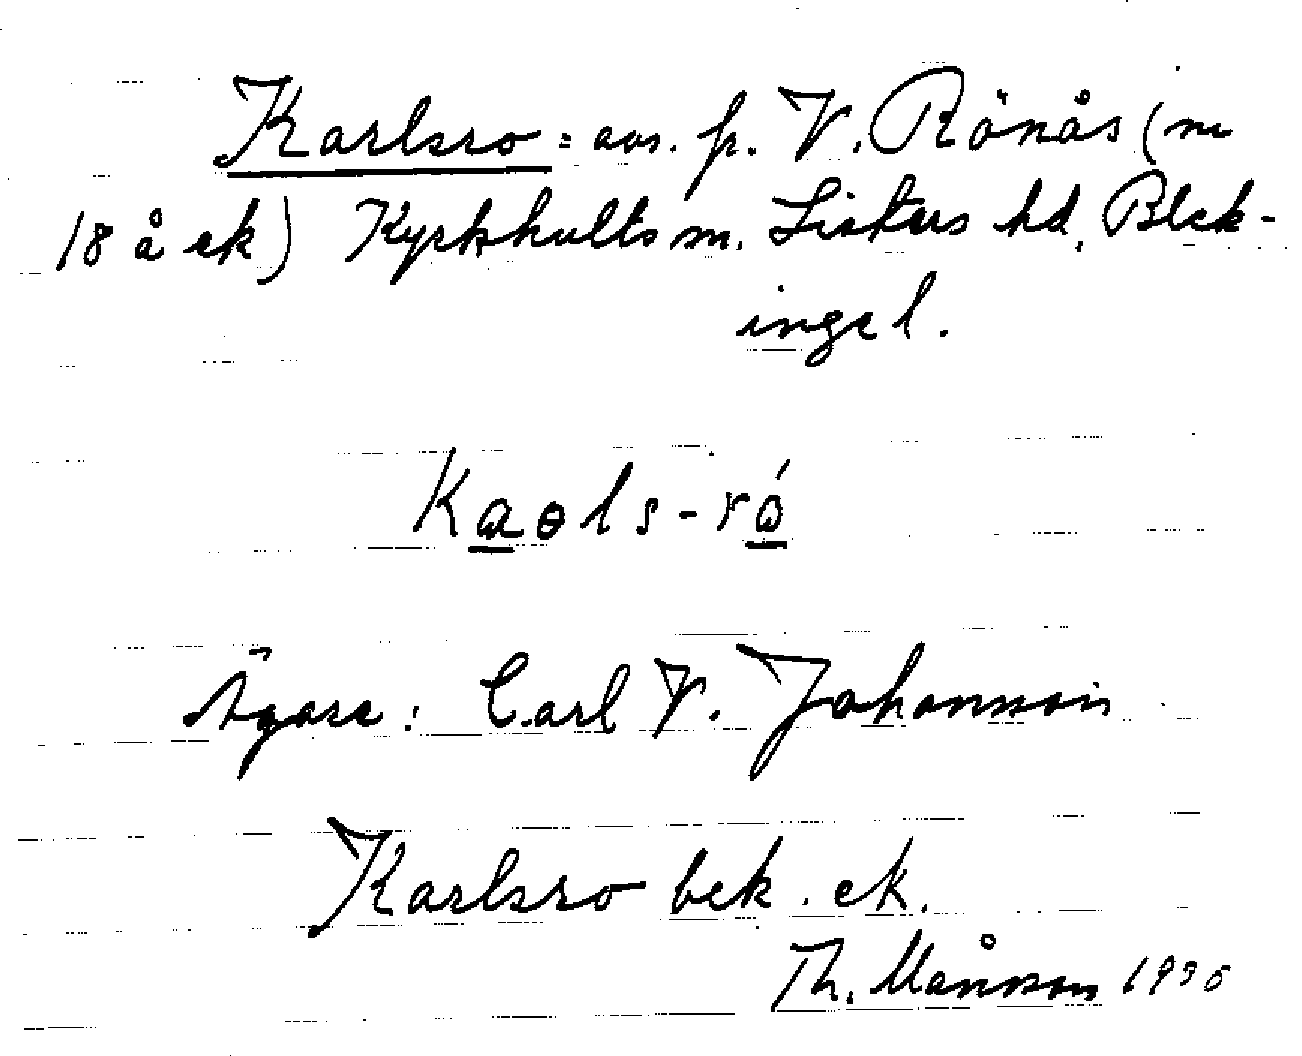 Karlsro = avs. fr. V. Rönås (m
18 å ek) Kyrkhults sn. Listers hd. Blek-
inge l.
Kaols-ró
Ägare: Carl V. Johansson
Karlsro bek. ek.
Th. Månsson 1935